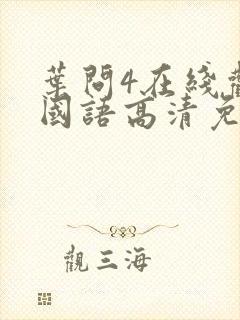 葉問4在綫觀
國語高清免
觀三海